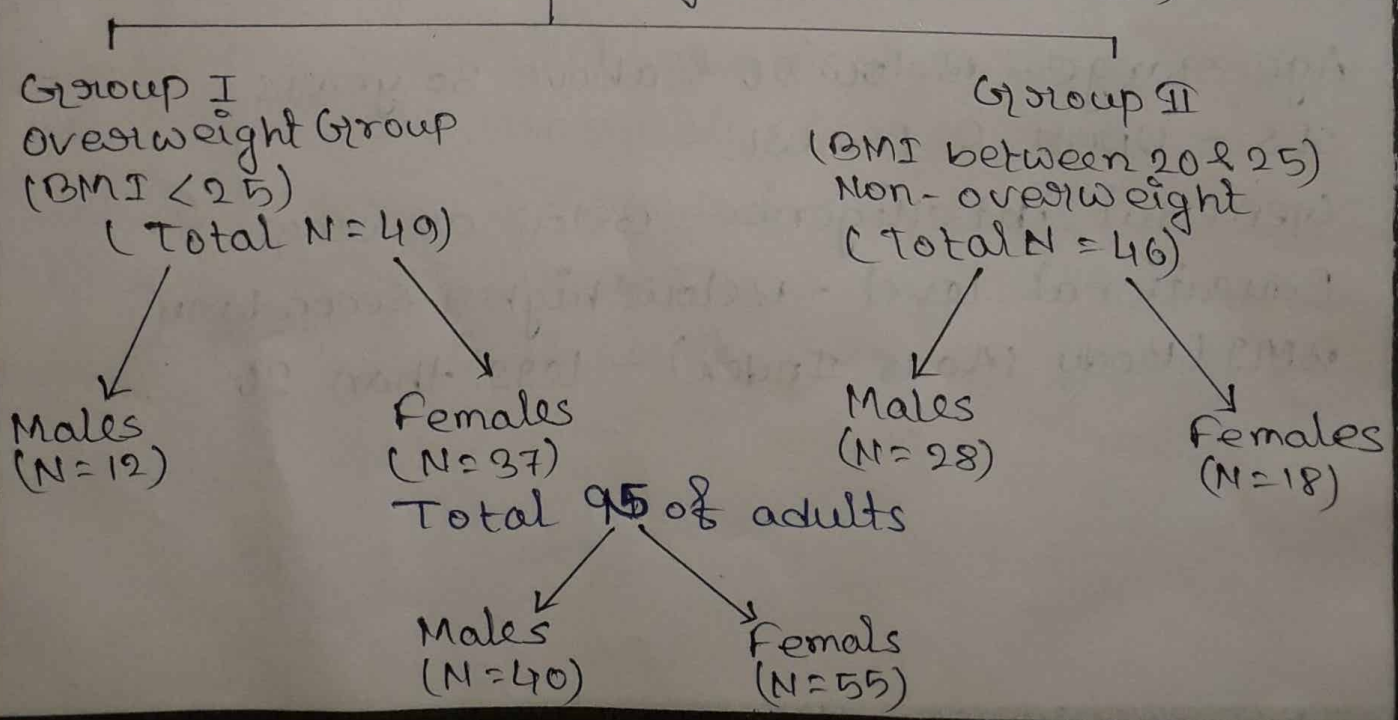 Group I
Overweight Group
(BMI < 25)
( Total N = 49)
Group II
(BMI between 20 & 25)
Non-overweight
(Total N = 46)
Males
(N = 12)
Females
(N = 37)
Males
(N = 28)
Females
(N = 18)
Total 95 of adults
Males
(N = 40)
Femals
(N = 55)